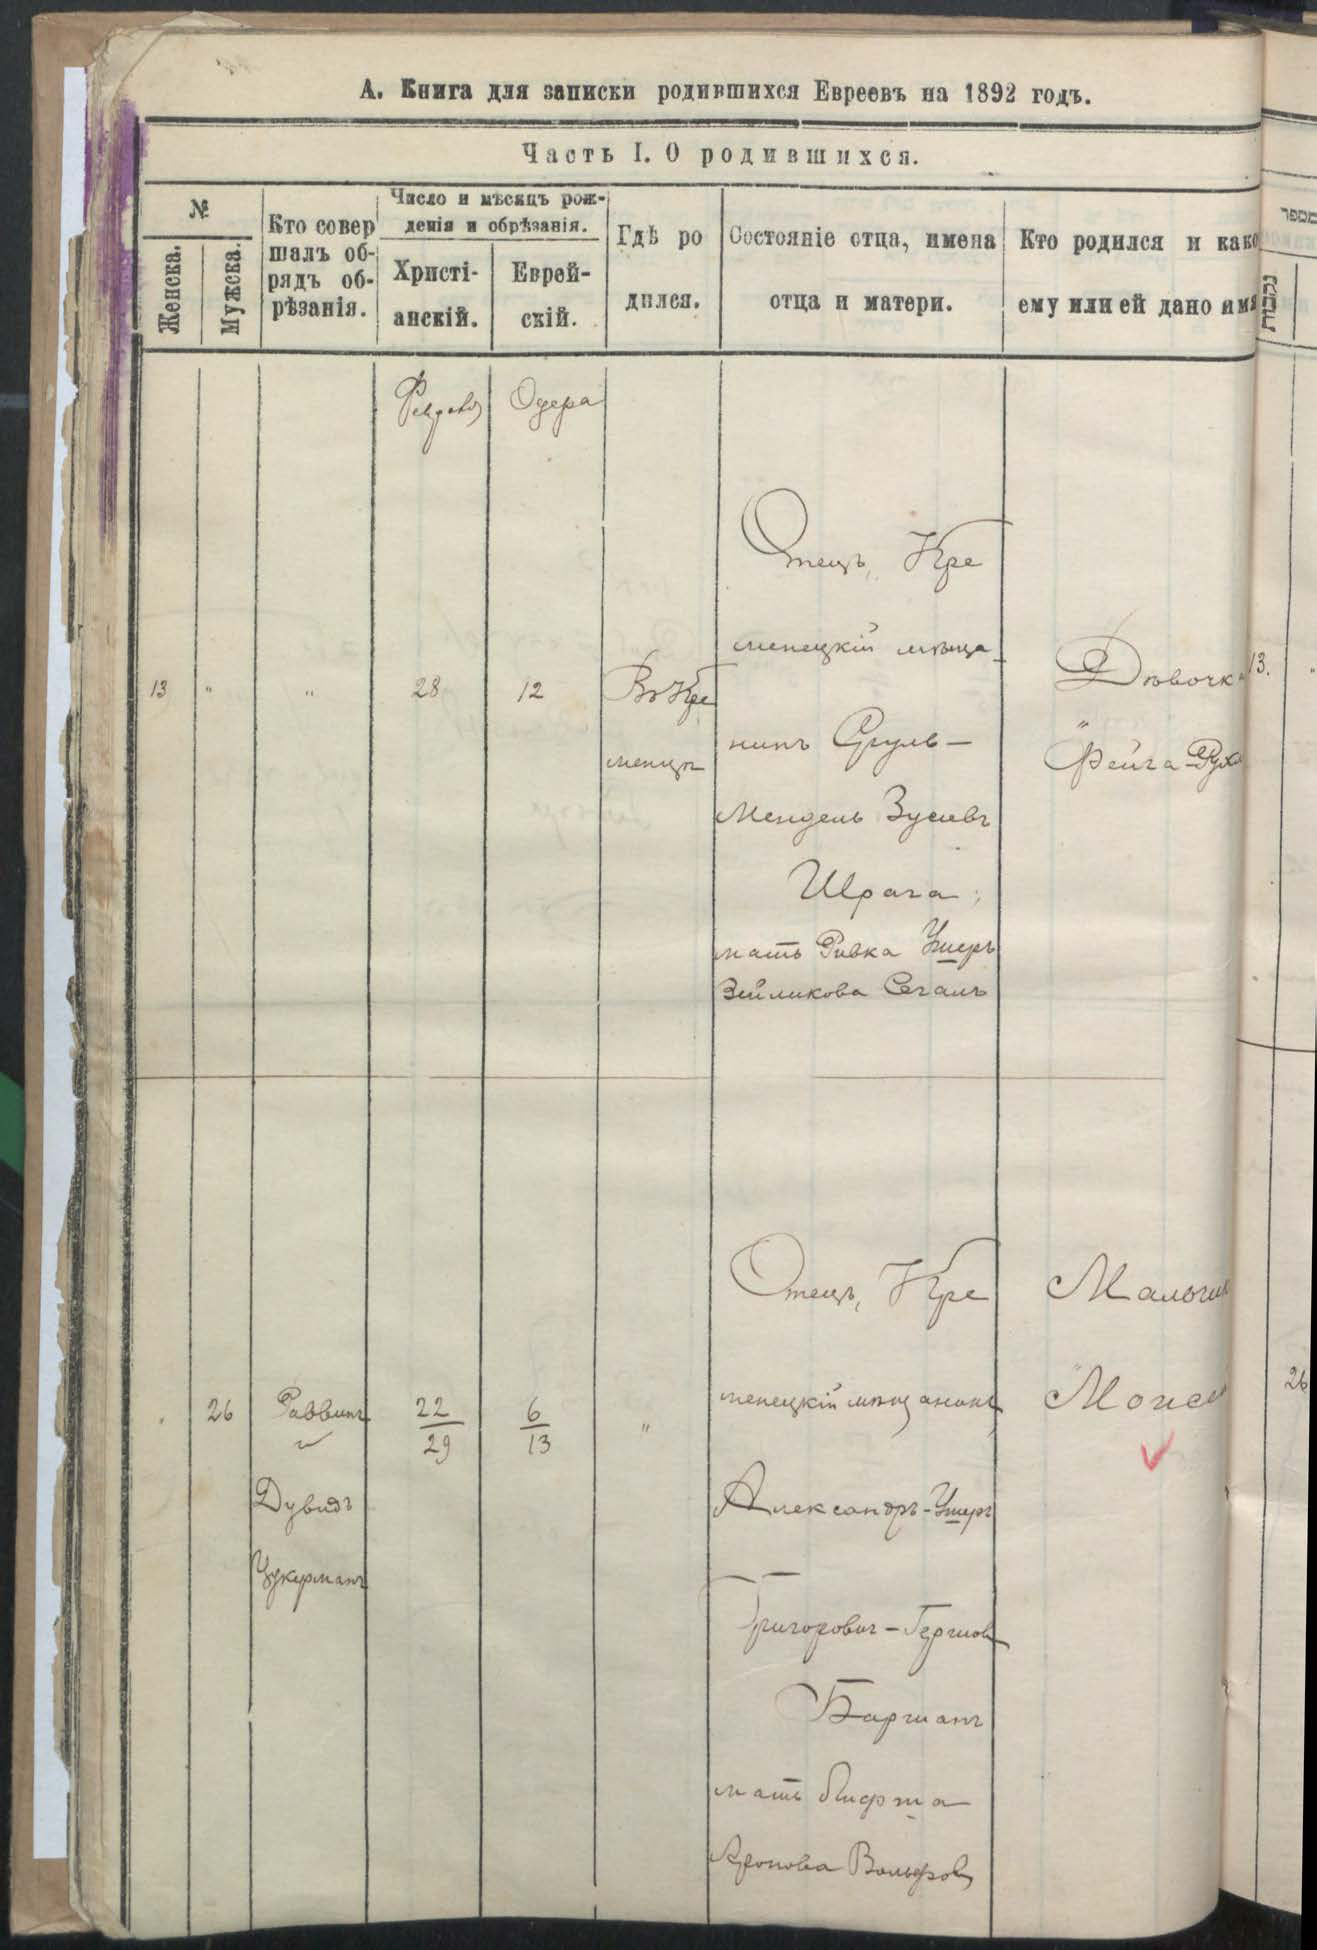 А. Книга для записки родившихся Евреевъ на 1892 годъ.
Часть I. О родившихся.
№
Женска.
Мужска.
Кто совер
шалъ об-
рядъ об-
рѣзанія.
Число и мѣсяцъ рож-
денія и обрѣзанія.
Христі-
анскій.
Еврей-
скій.
Гдѣ ро
дился.
Состояніе отца, имена
отца и матери.
Кто родился и како
ему или ей дано имя
מספר
נקבות
Одера
13 " " 28 12
Въ Кре
менцѣ
Отецъ, Кре
менецкій мѣща-
нинъ Сруль-
Мендель Зусевъ
Шрага;
мать Ривка Ушеръ
Зейликова Сегалъ
Дѣвочка
"
Фейга-Рухл
13.
26
Раввинъ
Дувидъ
Цукерманъ
22
29
6
13
"
Отецъ, Кре
менецкій мѣщанинъ
Александръ-Ушеръ
Григорович-Гершов
Баршанъ
мать
Аронова Вольфов
Мальчик
"
Моисей
26